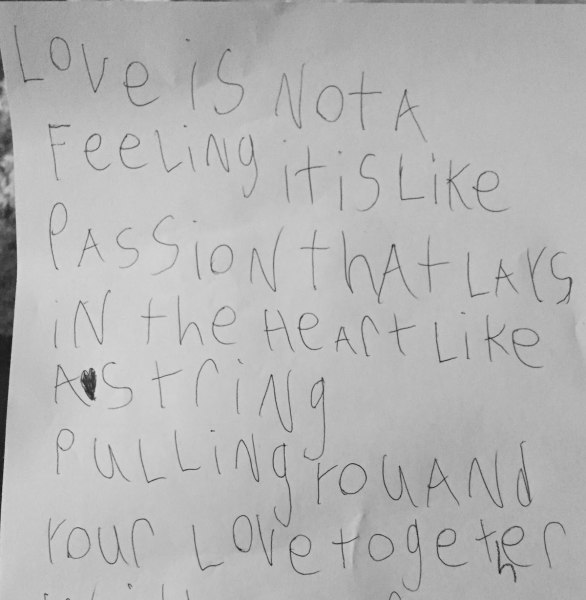 LOVe iS NOt A
FeeLiNg it iS LiKe
PASSiON thAt LAYS
iN the HeArt LiKe
A StriNg
PuLLiNg YOu AND
YOur LOVe together